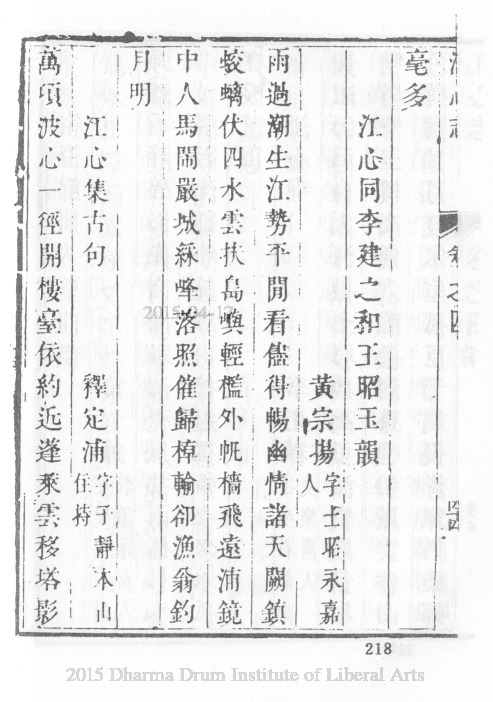 江心志 卷之四
毫多
江心同李建之和王昭玉韻
黃宗揚字士昭永嘉人
雨過潮生江勢平閒看儘得暢幽情諸天闕鎮
蛟螭伏四水雲扶島嶼輕檻外帆檣飛遠浦鏡
中人馬鬧嚴城綵峰落照催歸棹輸卻漁翁釣
月明
江心集古句 釋定浦字子靜本山住持
萬項波心一徑開樓臺依約近蓬萊雲移塔影
218
2015 Dharma Drum Institute of Liberal Arts